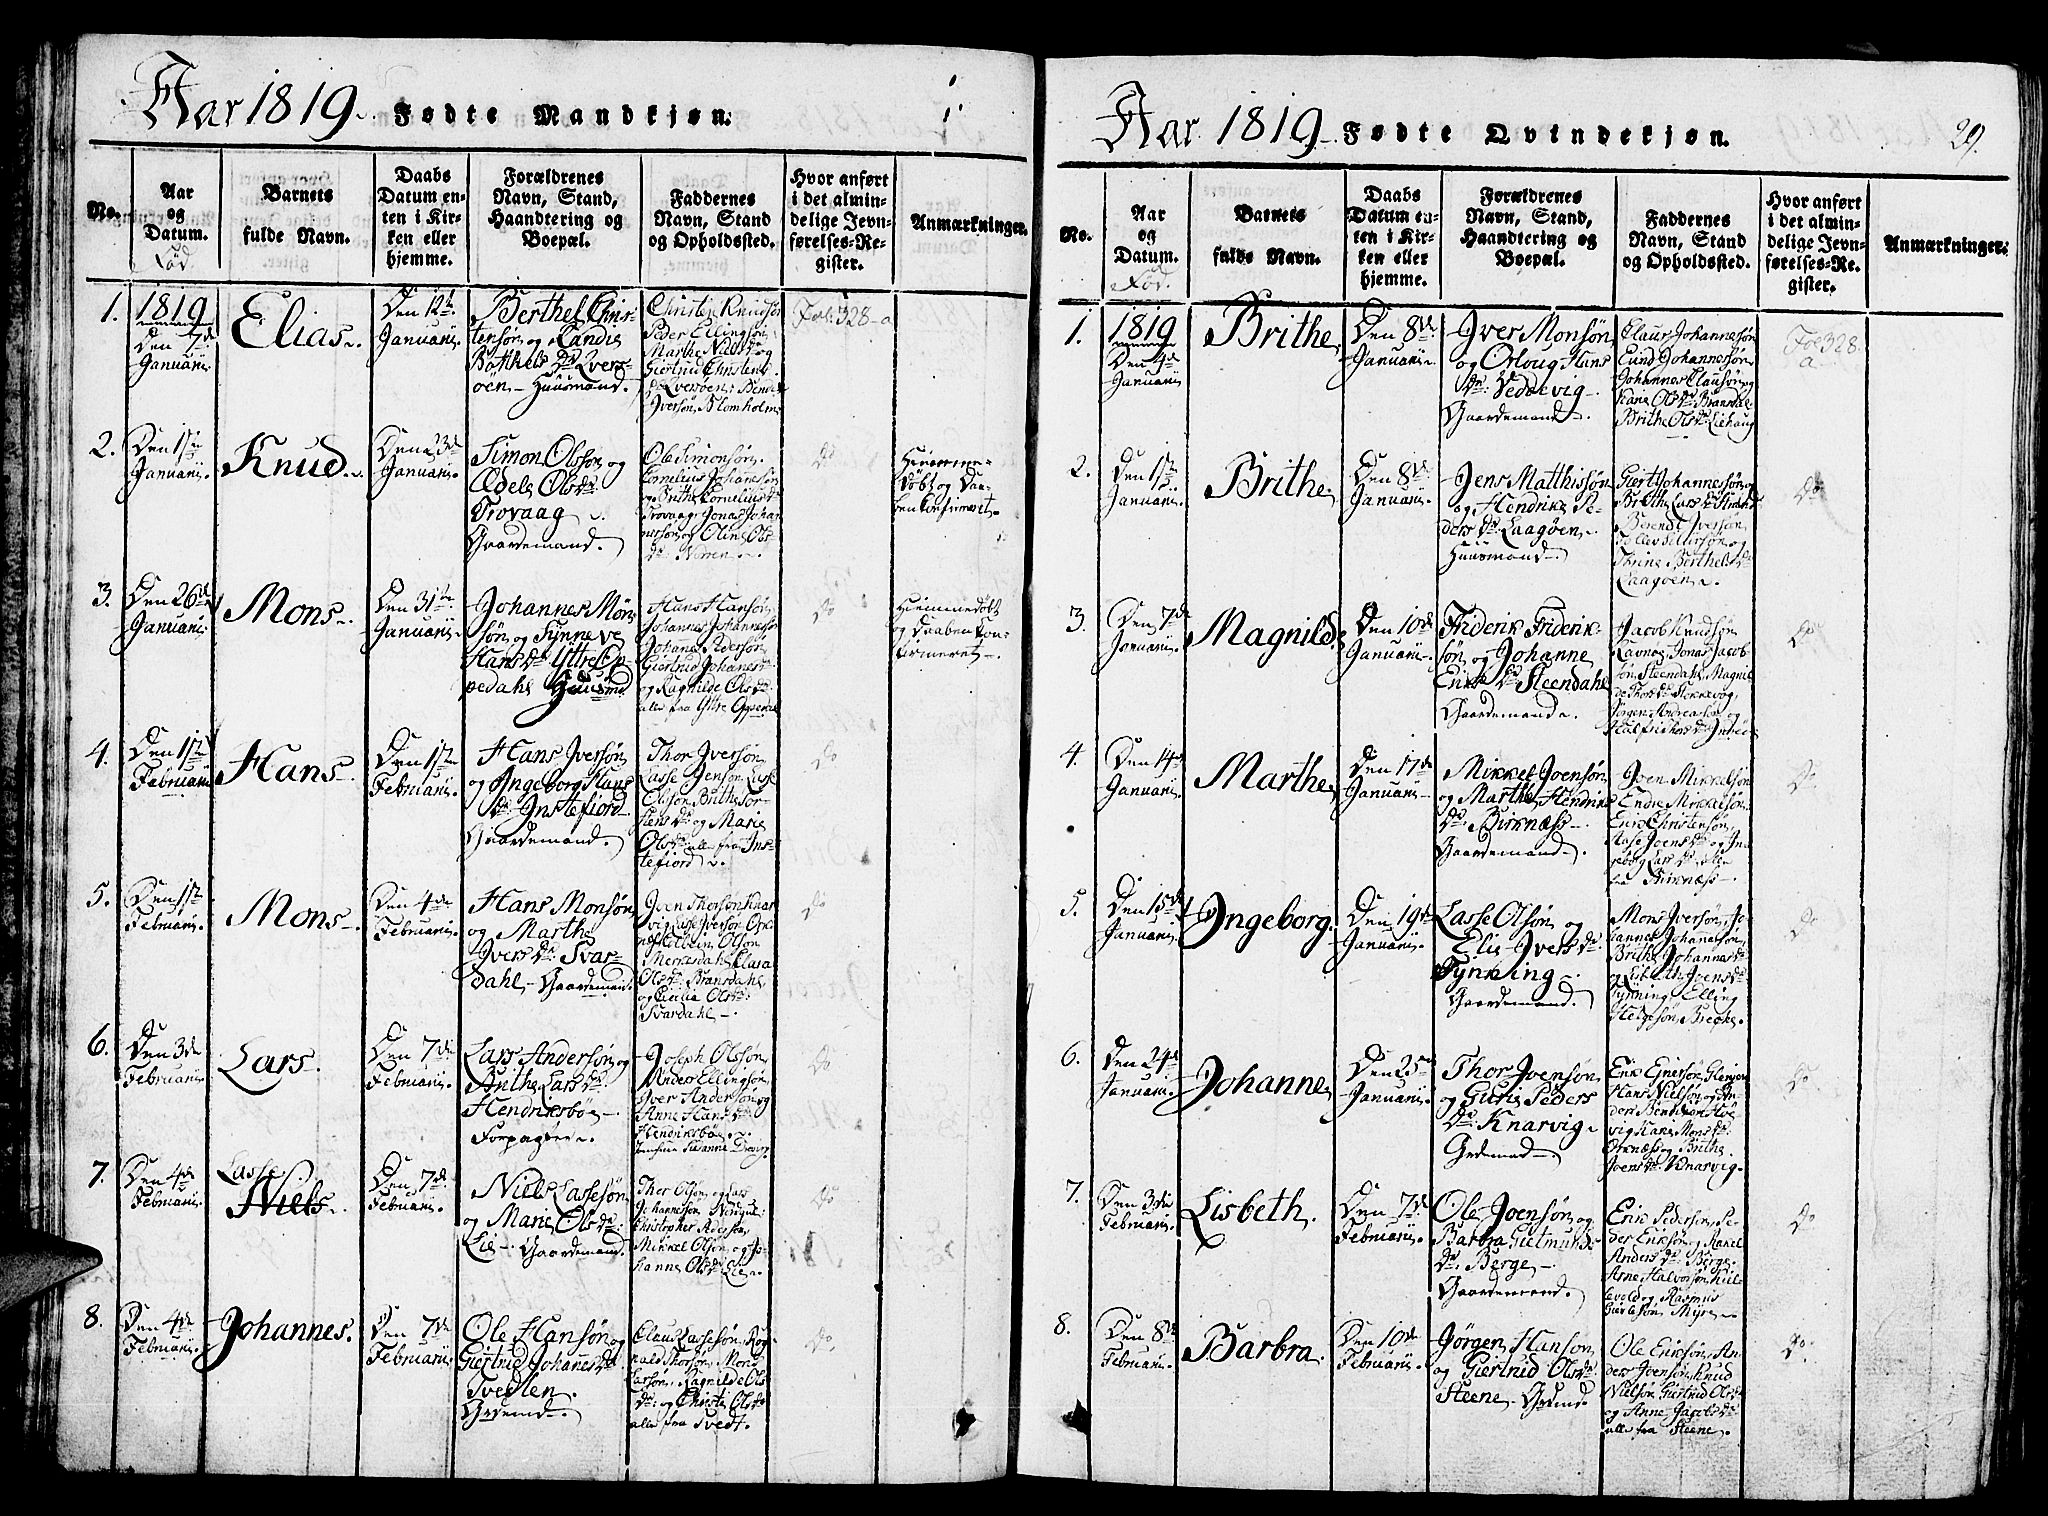 Aar 1819. Fødte Mandkjøn.
No.
Aar
og
Datum.
Fød
Barnets
fulde Navn.
Daabs
Datum en-
ten i Kir-
ken eller
hjemme.
Forældrenes
Navn, Stand,
Haandtering og
Boepæl.
Faddernes
Navn, Stand
og Opholdssted.
Hvor anført
i det almin-
delige Jevn-
førelses-Re-
gister.
Anmærkninger.
1.
1819
Den 7de
Januarii.
Elias.
Den 12te
Januarii.
Berthel Chris-
tensøn og Randis
Bøthels Dr Qvers-
øen – Huusmand.
Christen Knudsøn
Peder Ellingsøn
Marthe Niels Dr og
Giertrud Christens
Dr Qversøen, Bendix
Iversøn, Blomholm
Fol. 328-a
2.
Den 15de
Januarii.
Knud.
Den 23de
Januarii.
Simon Olsøn og
Ædele Ols Dr
Trovaag
Gaardemand.
Ole Simonsøn
Cornelius Johansøn
og Brithe Cornelius Dr
Trovaag, Jonas Johan-
nessøn og Oline Ols
Dr Noren.
Do
Hiemme-
døbt og Daa-
ben Confirmeret.
3.
Den 26de
Januarii.
Mons.
Den 31te
Januarii.
Johannes Mon-
søn og Synneve
Hans Dr Yttre Op-
pedahl Huusmd
Hans Hansøn,
Johannes Johannessøn
Johannes Pedersøn,
Giertrud Johannes Dr
og Ragnilde Ols Dr
alle fra Yttre Oppedal
Do
Hiemmedøbt
og Daaben Con-
firmeret.
4.
Den 1ste
Februarii
Hans.
Den 1ste
Februarii.
Hans Iversøn
og Ingeborg Hans
Dr Instefiord
Gaardemand.
Thor Iversøn
Lasse Jensøn Lasse
Olsøn Brithe Tor-
stens Dr og Marie
Ols Dr alle fra Ins-
tefiord
Do
5.
Den 1ste
Februarii.
Mons.
Den 4de
Februarii.
Hans Monsøn
og Marthe
Ivers Dr Svar-
dahl – Gaardeman.
Joen Thorsøn Knar-
vig
Olsøn
Merkesdahl Clara
Ols Dr Bransdahl
og Cicilia Ols Dr
Svardahl.
Do
6.
Den 3de
Februarii.
Lars.
Den 7de
Februarii.
Lars Andersøn og
Brithe Lars Dr
Hendriksbøe
Forpagter.
Joseph Olssøn
Anders Ellingsøn,
Iver Andersøn og
Anne Hans Dr
Hendriksbøe.
Susanne
Do
7.
Den 4de
Februarii.
Lasse
Niels.
Den 7de
Februarii.
Niels Lassesøn
og Marie Ols Dr
Lie – Gaardemand.
Thor Olsøn og Lars
Johannessøn
Christopher
Mikkel Olsøn, og Jo-
hanne Ols Dr Lie.
Do
8.
Den 4de
Februarii.
Johannes.
Den 7de
Februarii.
Ole Hansøn og
Giertrud Johannes Dr
Tvedten.
Grdemd.
Claus Lassesøn, Rog-
nald Thorsøn, Mons
Larsøn, Ragnilde Ols
Dr og Christi Ols Dr
alle fra Tvedt.
Do
Aar 1819. Fødte Qvindekjøn.
29.
No.
Aar
og
Datum.
Fød.
Barnets
fulde Navn.
Daabs
Datum en-
ten i Kir-
ken eller
hjemme.
Forældrenes
Navn, Stand,
Haandtering og
Boepæl.
Faddernes
Navn, Stand
og Opholdssted.
Hvor anført
i det almin-
delige Jevn-
førelses-Re-
gister.
Anmærkninger.
1.
1819
Den 4de
Januarii
Brithe
Den 8de
Januarii
Iver Monsøn
og Orloug Hans
Dr Veddevig
Gaardemand.
Claus Johannesøn
Evind Johannesøn
Johannes Clausøn og
Kane Ols Dr Bransdal
Brithe Ols Dr Liehaug
Fol 328.
a
2.
Den 1ste
Januarii.
Brithe
Den 8de
Januarii
Jens Matthissøn
og Hendrike Pe-
ders Dr Laagøen.
Huusmand.
Giert Johannesøn og
Brithe Lars Dr
Berendt Iversøn,
og
Thrine Berthels Dr
Laagøen.
Do
3.
Den 7de
Januarii.
Magnilde
Den 10de
Januarii.
Friderik Friderik-
søn og Johanne
Eriks Dr Steendahl
Gaardemand.
Jacob Knudsøn
Ravnøe, Jonas Jacob-
søn, Steendahl, Magnil-
de Thors Dr
Jørgen Andreasøn og
Do
4.
Den 14de
Januarii.
Marthe
Den 17de
Januarii
Mikkel Joensøn
og Marthe Hendriks
Dr Birknæss
Gaardemand.
Joen Mikkelsøn
Endre Mikkelsøn
Erik Christensøn,
Aase Joens Dr og In-
geborg Lars Dr alle
fra Birknæss
Do
5.
Den 15de
Januarii.
Ingeborg.
Den 19de
Januarii
Lasse Olsøn og
Elie Ivers Dr
Tynning
Gaardemand.
Mons Iversøn, Jo-
hannes Johannesøn,
Brithe Johannes Dr
og Lisbeth Joens Dr
Tynning, Elling
Helgesøn, Brekke.
Do
6.
Den 24de
Januarii.
Johanne
Den 25de
Januarii.
Thor Joensøn
og Guri Peders
Dr Knarvig
Grdemd.
Erik Einersøn,
Hans Nielsøn, og An-
ders Bendixøn
Kari Mons Dr
og Brithe
Joens Dr Knarvig.
Do
7.
Den 3die
Februarii.
Lisbeth.
Den 7de
Februarii.
Ole Joensøn og
Barbra Gietmunds
Dr Berge
Gaardemand.
Erik Pedersøn, Pe-
der Eriksøn, Rakel
Anders Dr Berge,
Arne Halvorsøn
og Rasmus
Myre.
Do
8.
Den 8de
Februarii.
Barbra.
Den 10de
Februarii.
Jørgen Hansøn
og Giertrud Ols Dr
Steene – Grdemd.
Ole Eriksøn, An-
ders Joensøn, Knud
Nielsøn Giertrud Ols Dr
og Anne Jacobs Dr
alle fra Steene.
Do